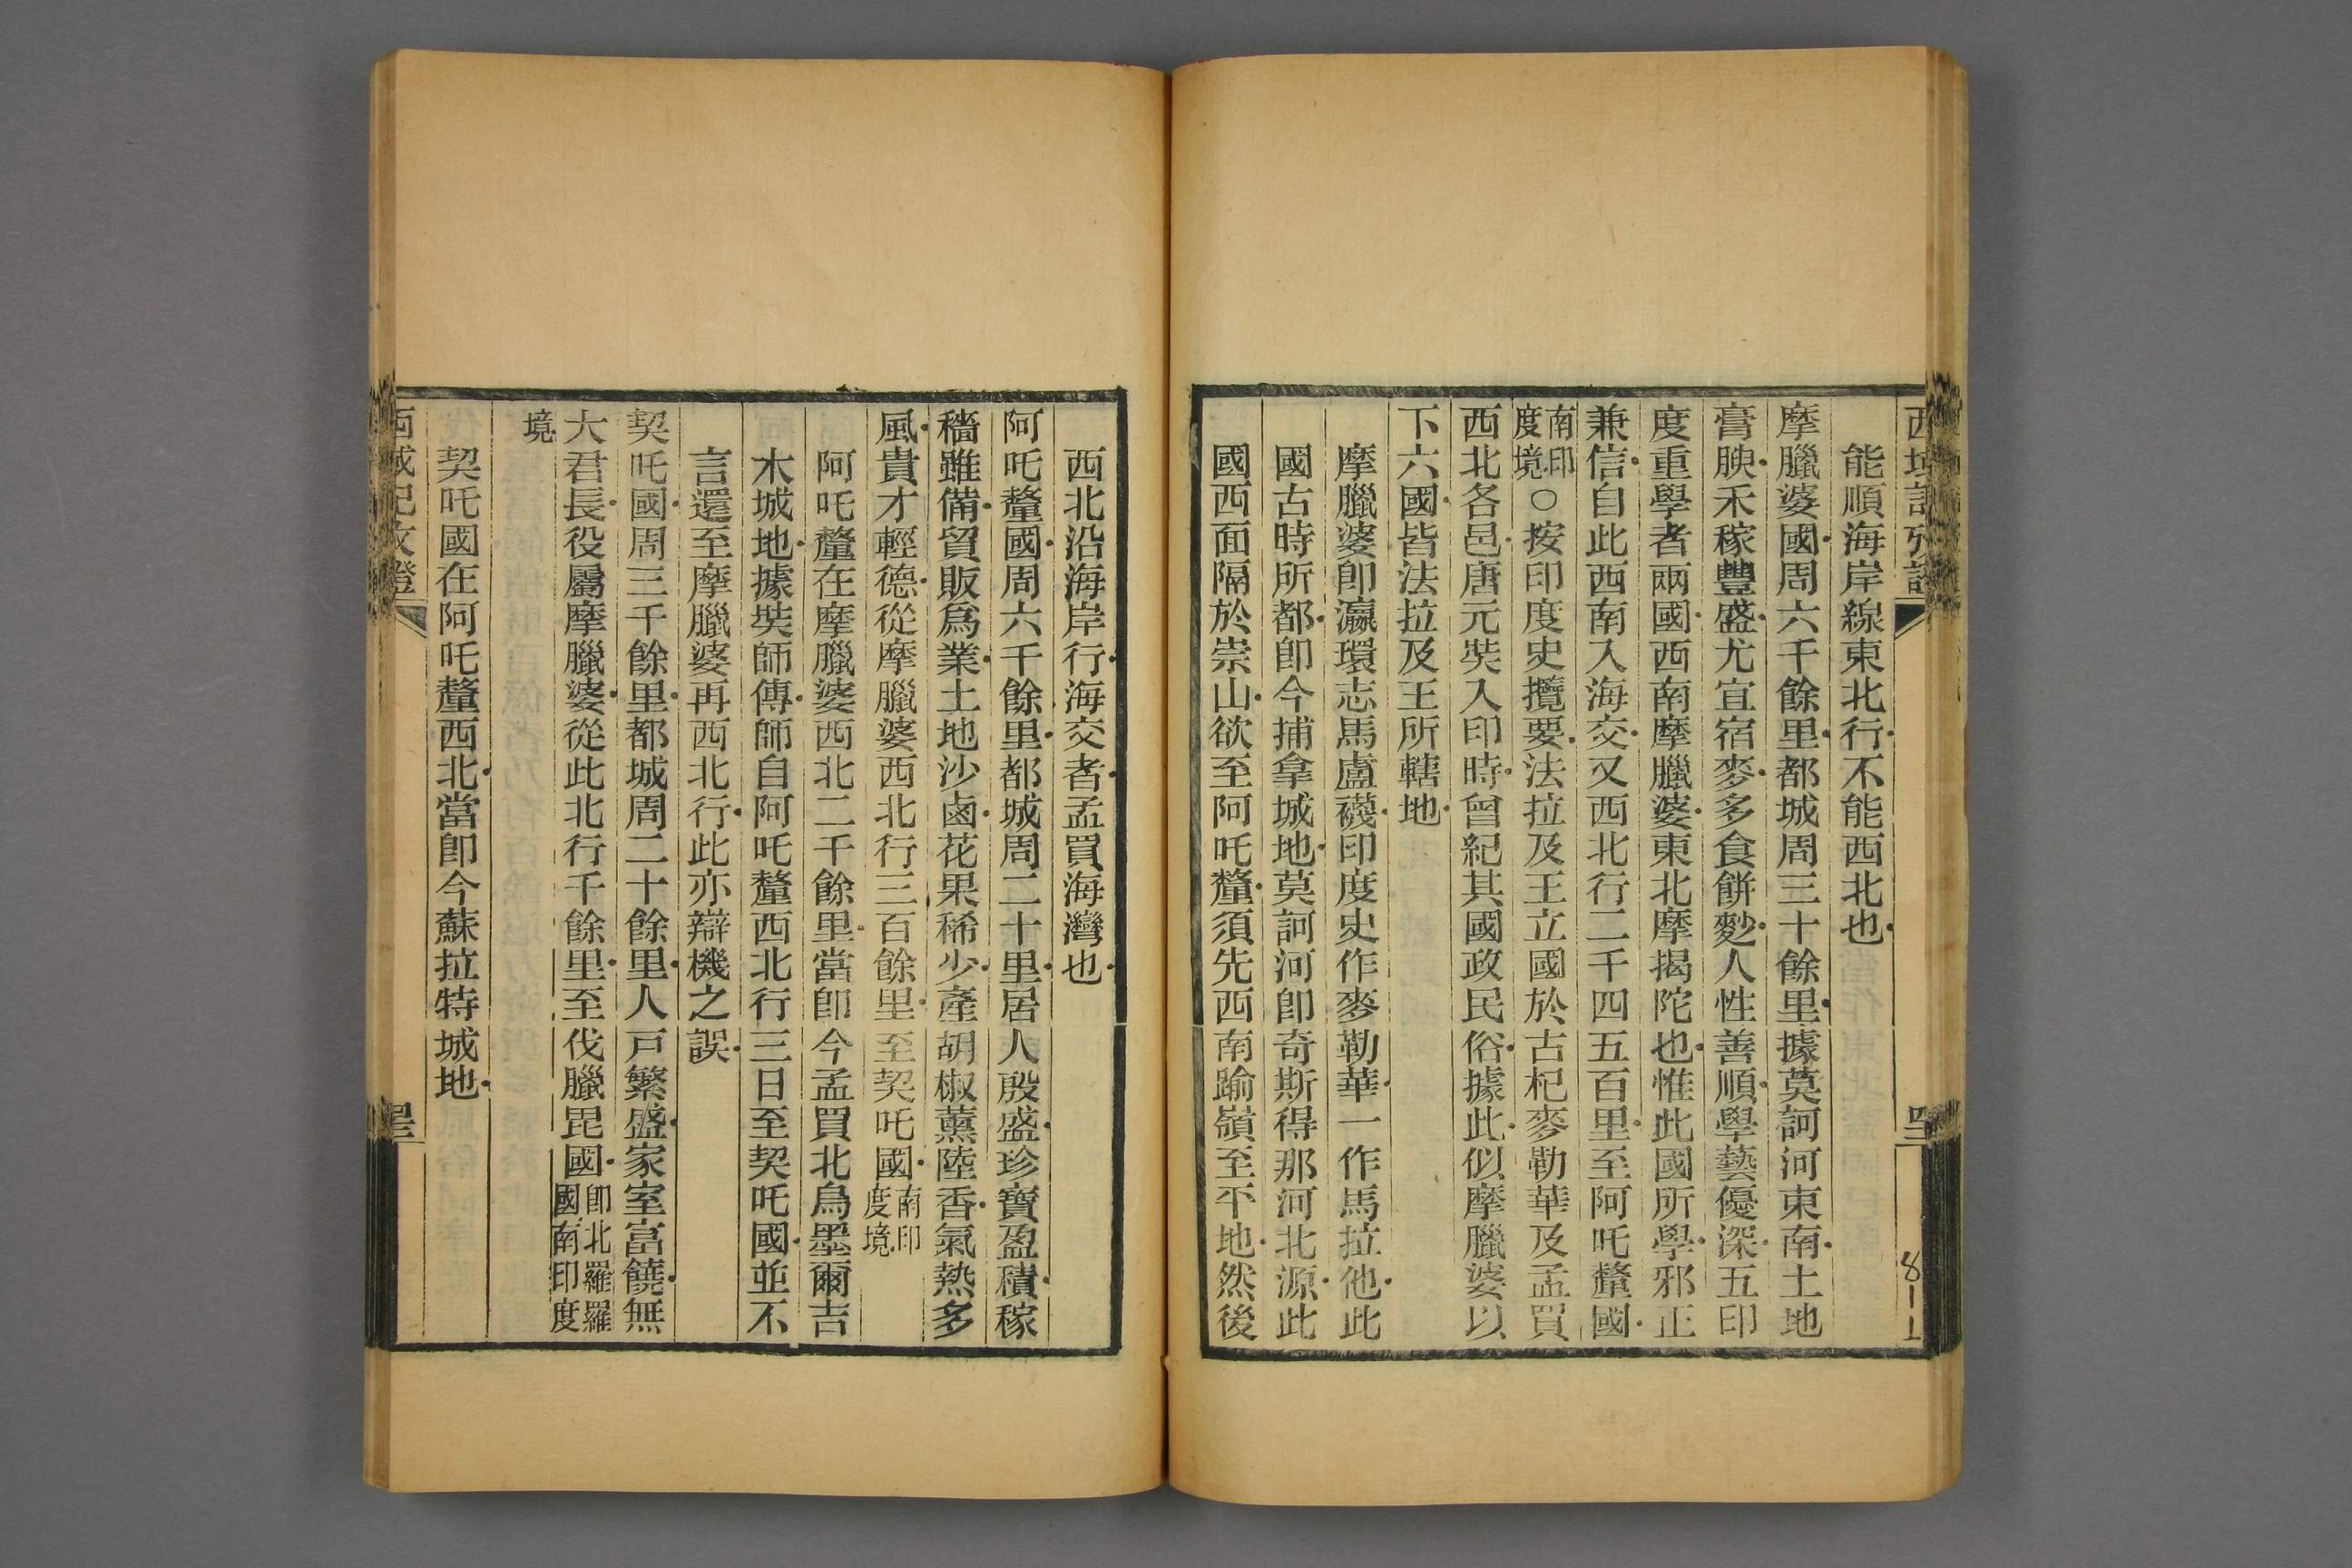 能順海岸線東北行不能西北也
摩臘婆國周六千餘里都城周三十餘里據莫訶河東南土地
膏腴禾稼豐盛尤宜宿麥多食餅麨人性善順學藝優深五印
度重學者兩國西南摩臘婆東北摩揭陀也惟此國所學邪正
兼信自此西南入海交又西北行二千四五百里至阿吒釐國
南印度境○按印度史攬要法拉及王立國於古杞麥勒華及孟買
西北各邑唐元奘入印時曾紀其國政民俗據此似摩臘婆以
下六國皆法拉及王所轄地
摩臘婆卽瀛環志馬盧襪印度史作麥勒華一作馬拉他此
國古時所都卽今捕拿城地莫訶河卽奇斯得那河北源此
國西面隔於崇山欲至阿吒釐須先西南踰嶺至平地然後
西北沿海岸行海交者孟買海灣也
阿吒釐國周六千餘里都城周二十里居人殷盛珍寶盈積稼
穡雖備貿販爲業土地沙鹵花果稀少產胡椒薰陸香氣熱多
風貴才輕德從摩臘婆西北行三百餘里至契吒國南印度境
阿吒釐在摩臘婆西北二千餘里當卽今孟買北烏墨爾吉
木城地據奘師傳師自阿吒釐西北行三日至契吒國並不
言還至摩臘婆再西北行此亦辯機之誤
契吒國周三千餘里都城周二十餘里人戸繁盛家室富饒無
大君長役屬摩臘婆從此北行千餘里至伐臘毘國卽北羅羅國南印度
境
契吒國在阿吒釐西北當卽今蘇拉特城地